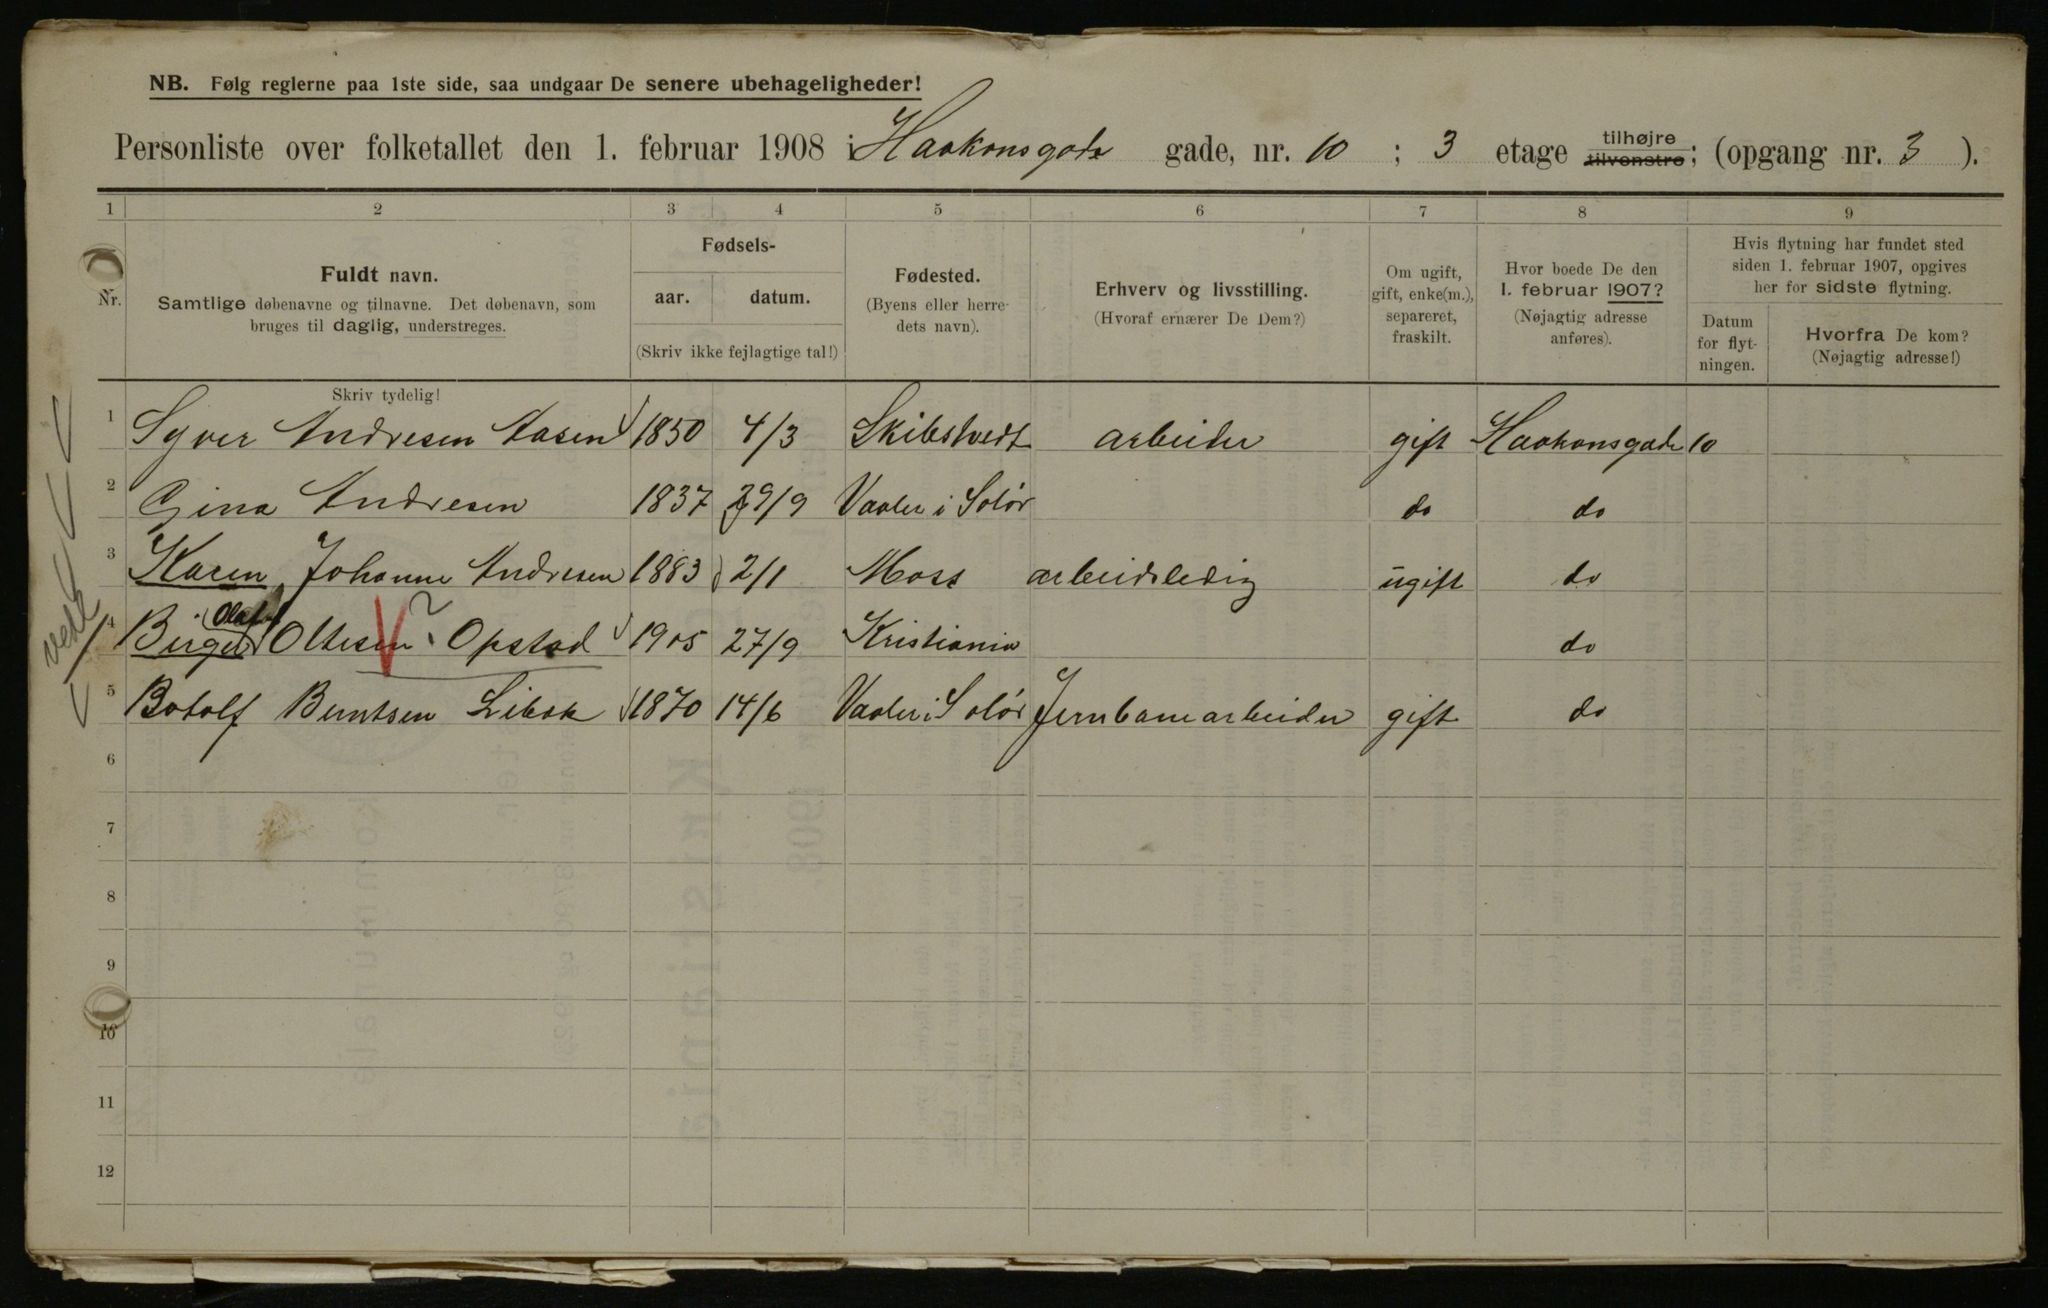 NB. Følg reglerne paa 1ste side, saa undgaar De senere ubehageligheder!
Personliste over folketallet den 1. februar 1908 i Haakonsgade gade, nr. 10 ; 3 etage tilhøjre tilvenstre; (opgang nr. 3 ).
1 2 3 4 5 6 7 8 9
Nr.
Fuldt navn.
Samtlige døbenavne og tilnavne. Det døbenavn, som
bruges til daglig, understreges.
Skriv tydelig!
Fødsels-
aar. datum.
(Skriv ikke fejlagtige tal!)
Fødested.
(Byens eller herre-
dets navn).
Erhverv og livsstilling.
(Hvoraf ernærer De Dem?)
Om ugift,
gift, enke(m.),
separeret,
fraskilt.
Hvor boede De den
1. februar 1907?
(Nøjagtig adresse
anføres).
Hvis flytning har fundet sted
siden 1. februar 1907, opgives
her for sidste flytning.
Datum
for flyt-
ningen.
Hvorfra De kom?
(Nøjagtig adresse!)
1 Syver Andresen Aasen 1850 4/3 Skibstvedt arbeider gift Haakonsgade 10
2 Gina Andresen 1837 29/9 Vaaler i Solør do do
3 Karen Johanne Andresen 1883 2/1 Moss arbeidsledig ugift do
Olaf
4 Birger Olsen ? Opstad 1905 27/9 Kristiania do
5 Botolf Berntsen 1870 14/6 Vaaler i Solør Jernbanearbeider gift do
6
7
8
9
10
11
12